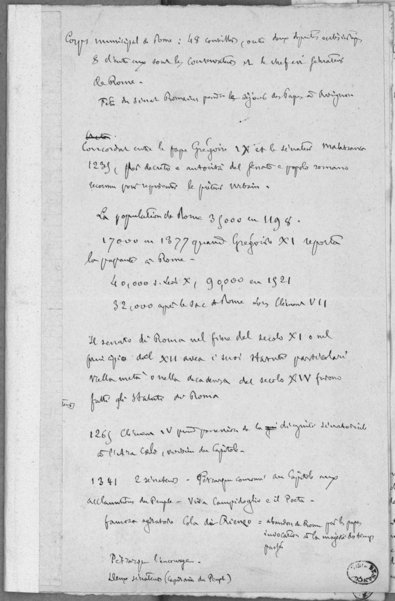 Corps municipal de Rome : 48 conseillers, outre deux
8 d'entre eux sont les Conservateurs et le chef est Sénateur
de Rome.
du Sénat Romain pendant le séjour des Papes à Avignon
Concordat entre le pape Grégoire IX et le sénateur Malabranca
1235, per decreto e autorità del senato e popolo romano
reconnu pour représenter le préteur urbain.
La population de Rome 35000 en 1198.
17000 en 1377 quand Grégoire XI reporta
la papauté à Rome.
40,000 s. Léon X, 90,000 en 1521
32,000 après le sac de Rome sous Clément VII
Il senato di Roma nel fine del secolo XI o nel
principio del XII avea i suoi statuti particolari
Nella metà o nella decadenza del secolo XIV furono
fatti gli statuti di Roma
1265 Clément IV prend possession de la dignité sénatoriale
à l'Ara Coeli, du Capitole.
1341 2 sénateurs - Pétrarque couronné au Capitole aux
acclamations du Peuple - Viva Campidoglio e il Poeta.
famoso Cola di Rienzo = abandon de Rome par les papes,
invocation à la majesté des temps
passés
Pétrarque l'encourage.
Deux sénateurs (Capitaine du Peuple)